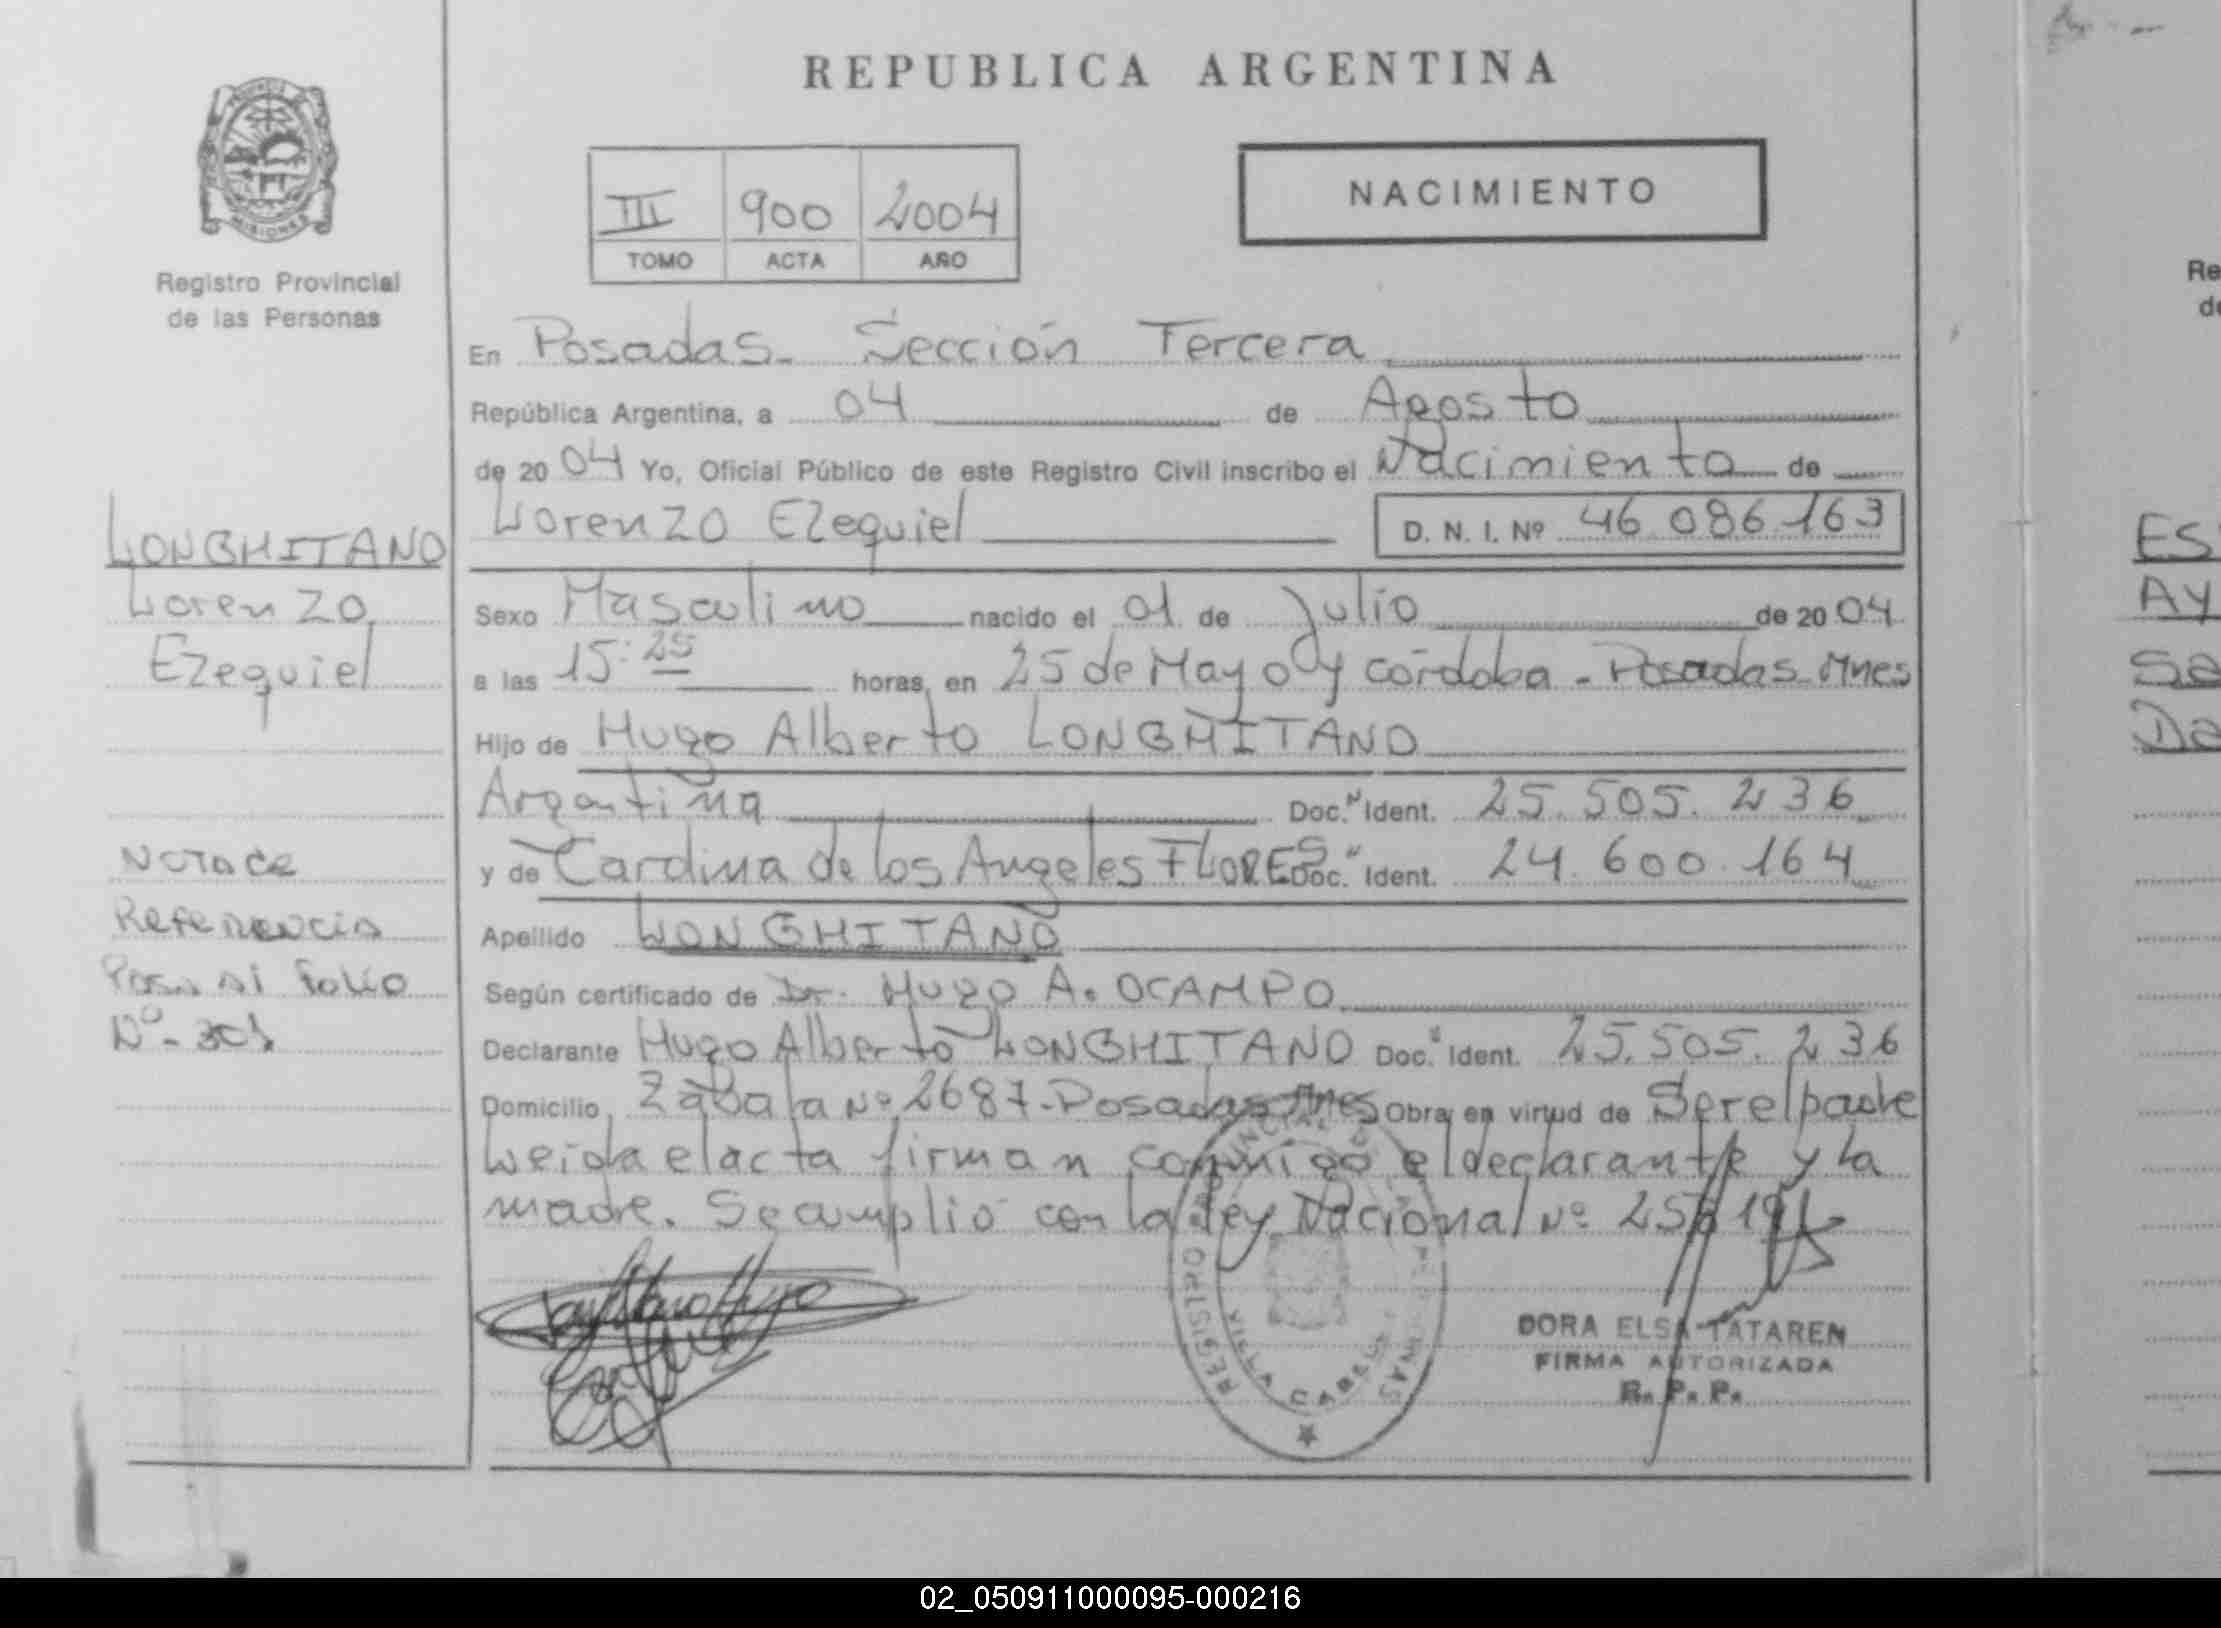 REPUBLICA ARGENTINA
PROVINCIA DE
MISIONES
Registro Provincial
de las Personas
III 900 2004
TOMO ACTA AÑO
NACIMIENTO
En Posadas. Sección Tercera
República Argentina, a 04 de Agosto
de 2004 Yo, Oficial Público de este Registro Civil inscribo el Nacimiento de
Lorenzo Ezequiel D. N. I. Nº 46.086.163
Sexo Masculino nacido el 01 de Julio de 2004
a las 15:25 horas, en 25 de Mayo y Córdoba - Posadas. Mnes
Hijo de Hugo Alberto LONGHITANO
Argentina Doc. Ident. 25.505.236
y de Cardina de los Angeles FLORES Doc. Ident. 24.600.164
Apellido LONGHITANO
Según certificado de Dr. Hugo A. OCAMPO
Declarante Hugo Alberto LONGHITANO Doc. Ident. 25.505.236
Domicilio Zabala Nº 2687-Posadas Mnes Obra en virtud de Ser el padre
Leida el acta firman conmigo el declarante y la
madre. Se cumplió con la ley Nacional Nº
LONGHITANO
Lorenzo
Ezequiel
Nota de
Referencia
Pasa al Folio
Nº- 301
REGISTRO PROVINCIAL DE LAS PERSONAS
VILLA CABELLO
DORA ELSA TATAREN
FIRMA AUTORIZADA
R. P. P.
Re
de
ES
AY
Sa
Da
02_050911000095-000216